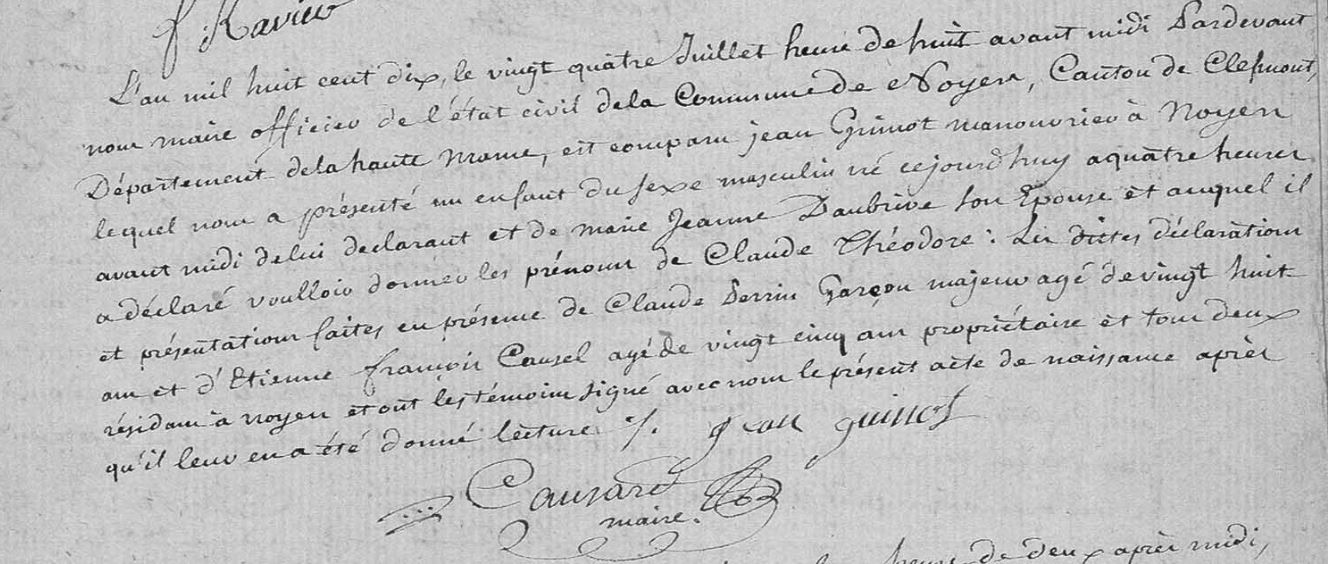 f. Ravier
L'an mil huit cent dix, le vingt quatre Juillet heure de huit avant midi Pardevant
nous maire officier de l'état civil dela Commune de Noyen, Canton de Clefmont,
Département dela haute Marne, est comparu jean Guinot manouvrier à Noyen
lequel nous a présenté un enfant du sexe masculin né cejourd'huy a quatre heures
avant midi de lui declarant et de marie Jeanne Daubrive son Epouse et auquel il
a déclaré voulloir donner les prénoms de Claude Théodore : Les dittes déclaration
et présentation faites en présence de Claude Perrin Garçon majeur agé de vingt huit
ans et d'Etienne françois Causel agé de vingt cinq ans propriétaire et tous deux
résidans à noyen et ont les témoins signé avec nous le présent acte de naissance après
qu'il leur en a été donné lecture ./. jean guinot
Causard
maire.
heure de deux après midi,